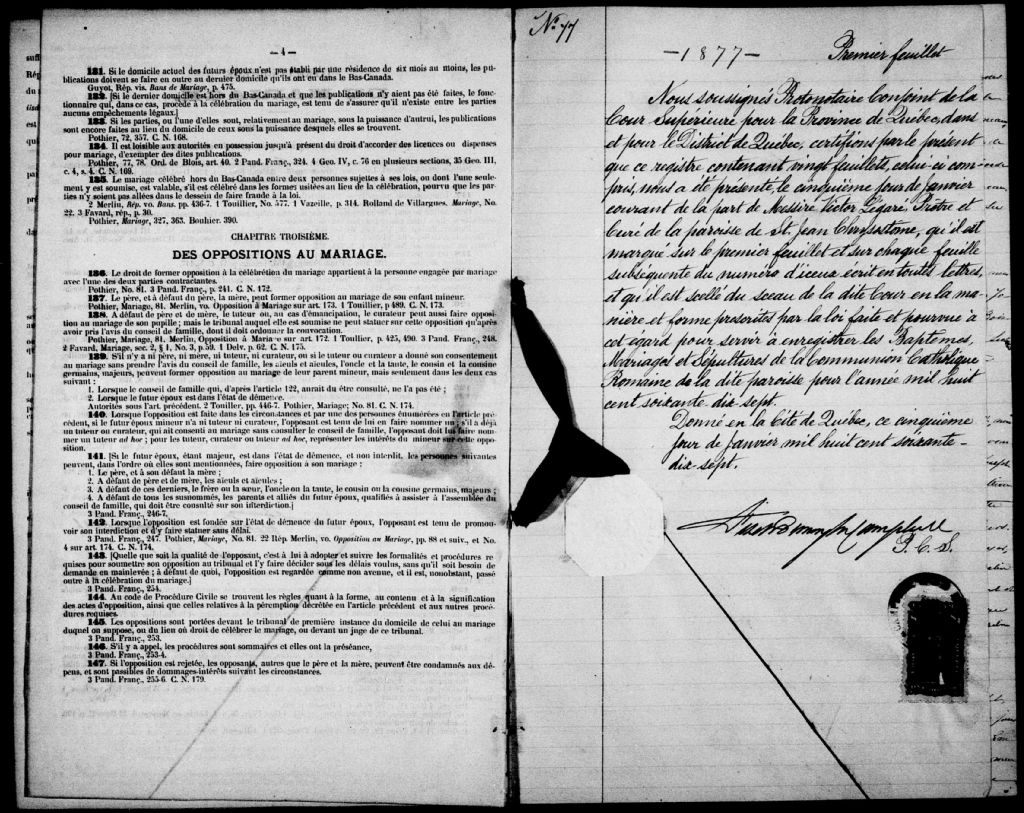 — 4 —
131. Si le domicile actuel des futurs époux n'est pas établi par une résidence de six mois au moins, les publications
doivent se faire en outre au dernier domicile qu'ils ont eu dans le Bas-Canada.
Guyot, Rép. vis. Bans de Mariage, p. 475.
132. [Si le dernier domicile est hors du Bas-Canada et que les publications n'y aient pas été faites, le fonctionnaire
qui, dans ce cas, procède à la célébration du mariage, est tenu de s'assurer qu'il n'existe entre les parties
aucuns empêchements légaux.]
133. Si les parties, ou l'une d'elles sont, relativement au mariage, sous la puissance d'autrui, les publications
sont encore faites au lieu du domicile de ceux sous la puissance desquels elles se trouvent.
Pothier, 72, 357. C. N. 168.
134. Il est loisible aux autorités en possession jusqu'à présent du droit d'accorder des licences ou dispenses
pour mariage, d'exempter des dites publications.
Pothier, 77, 78. Ord. de Blois, art. 40. 2 Pand. Franç., 324. 4 Geo. IV, c. 76 en plusieurs sections, 35 Geo. III,
c. 4, s. 4. C. N. 169.
135. Le mariage célébré hors du Bas-Canada entre deux personnes sujettes à ses lois, ou dont l'une seulement
y est soumise, est valable, s'il est célébré dans les formes usitées au lieu de la célébration, pourvu que les parties
n'y soient pas allées dans le dessein de faire fraude à la loi.
2 Merlin, Rép. vo. Bans, pp. 436-7. 1 Toullier, No. 577. 1 Vazeille, p. 314. Rolland de Villargues. Mariage, No.
22. 3 Favard, rép., p. 30.
Pothier, Mariage, 327, 363. Bouhier. 390.
CHAPITRE TROISIÈME.
DES OPPOSITIONS AU MARIAGE.
136. Le droit de former opposition à la célébration du mariage appartient à la personne engagée par mariage
avec l'une des deux parties contractantes.
Pothier, No. 81. 3 Pand. Franç., p. 241. C. N. 172.
137. Le père, et à défaut du père, la mère, peut former opposition au mariage de son enfant mineur.
Pothier, Mariage, 81. Merlin, vo. Opposition à Mariage sur art. 173. 1 Toullier, p 489. C. N. 173.
138. A défaut de père et de mère, le tuteur ou, au cas d'émancipation, le curateur peut aussi faire opposition
au mariage de son pupille; mais le tribunal auquel elle est soumise ne peut statuer sur cette opposition qu'après
avoir pris l'avis du conseil de famille, dont il doit ordonner la convocation.
Pothier, Mariage, 81. Merlin, Opposition à Mariage sur art. 172. 1 Toullier, p. 425, 490. 3 Pand. Franç., 248.
2 Favard, Mariage, sec. 2, § 1, No. 3, p. 59. 1 Delv. p. 62. C. N. 175.
139. S'il n'y a ni père, ni mère, ni tuteur, ni curateur, ou si le tuteur ou curateur a donné son consentement
au mariage sans prendre l'avis du conseil de famille, les aïeuls et aïeules, l'oncle et la tante, le cousin et la cousine
germains, majeurs, peuvent former opposition au mariage de leur parent mineur, mais seulement dans les deux cas
suivant :
1. Lorsque le conseil de famille qui, d'après l'article 122, aurait du être consulté, ne l'a pas été ;
2. Lorsque le futur époux est dans l'état de démence.
Autorités sous l'art. précédent. 2 Toullier, pp. 446-7. Pothier, Mariage; No. 81. C. N. 174.
140. Lorsque l'opposition est faite dans les circonstances et par une des personnes énumérées en l'article précédent,
si le futur époux mineur n'a ni tuteur ni curateur, l'opposant est tenu de lui en faire nommer un ; s'il a déjà
un tuteur ou curateur, qui ait consenti au mariage sans consulter le conseil de famille, l'opposant doit lui faire nommer
un tuteur ad hoc ; pour les tuteur, curateur ou tuteur ad hoc, représenter les intérêts du mineur sur cette opposition.
141. [Si le futur époux, étant majeur, est dans l'état de démence, et non interdit, les personnes suivantes
peuvent, dans l'ordre où elles sont mentionnées, faire opposition à son mariage :
1. Le père, et à son défaut la mère ;
2. A défaut de père et de mère, les aïeuls et aïeules ;
3. A défaut de ces derniers, le frère ou la sœur, l'oncle ou la tante, le cousin ou la cousine germains, majeurs ;
4. A défaut de tous les susnommés, les parents et alliés du futur époux, qualifiés à assister à l'assemblée du
conseil de famille, qui doit être consulté sur son interdiction.]
3 Pand. Franç., 246-7.
142. Lorsque l'opposition est fondée sur l'état de démence du futur époux, l'opposant est tenu de promouvoir
son interdiction et d'y faire statuer sans délai.
3 Pand. Franç., 247. Pothier, Mariage, No. 81. 22 Rép. Merlin, vo. Opposition au Mariage, pp. 88 et suiv., et No.
4 sur art. 174. C. N. 174.
143. [Quelle que soit la qualité de l'opposant, c'est à lui à adopter et suivre les formalités et procédures requises
pour soumettre son opposition au tribunal et l'y faire décider sous les délais voulus, sans qu'il soit besoin de
demande en mainlevée ; à défaut de quoi, l'opposition est regardée comme non avenue, et il est, nonobstant, passé
outre à la célébration du mariage.]
3 Pand. Franç., 254.
144. Au code de Procédure Civile se trouvent les règles quant à la forme, au contenu et à la signification
des actes d'opposition, ainsi que celles relatives à la péremption décrétée en l'article précédent et aux autres procédures
requises.
145. Les oppositions sont portées devant le tribunal de première instance du domicile de celui au mariage
duquel on suppose, ou du lieu où droit de célébrer le mariage, ou devant un juge de ce tribunal.
3 Pand. Franç., 253.
146. S'il y a appel, les procédures sont sommaires et elles ont la préséance,
3 Pand. Franç., 253-4.
147. Si l'opposition est rejetée, les opposants, autres que le père et la mère, peuvent être condamnés aux dépens,
et sont passibles de dommages-intérêts suivant les circonstances.
3 Pand. Franç., 255-6. C. N. 179.
No 77
— 1877 — Premier feuillet
Nous soussignés Protonotaire Conjoint de la
Cour Supérieure pour la Province de Québec, dans
et pour le District de Québec, certifions par le présent
que ce registre contenant vingt feuillets, celui-ci com
pris, nous a été présenté, le cinquième jour de Janvier
courant de la part de Messire Victor Légaré, Prêtre et
Curé de la paroisse de St. Jean Chrysostôme, qu'il est
marqué sur le premier feuillet et sur chaque feuille
subséquente du numéro d'iceux écrit en toutes lettres,
et qu'il est scellé du sceau de la dite Cour en la ma-
nière et forme prescrites par la loi faite et pourvue à
cet égard pour servir à enregistrer les Baptêmes,
Mariages et Sépultures de la Communion Catholique
Romaine de la dite paroisse pour l'année mil huit
cent soixante dix sept.
Donné en la Cité de Québec, ce cinquième
jour de Janvier mil huit cent soixante-
dix-sept.
P. C. S.